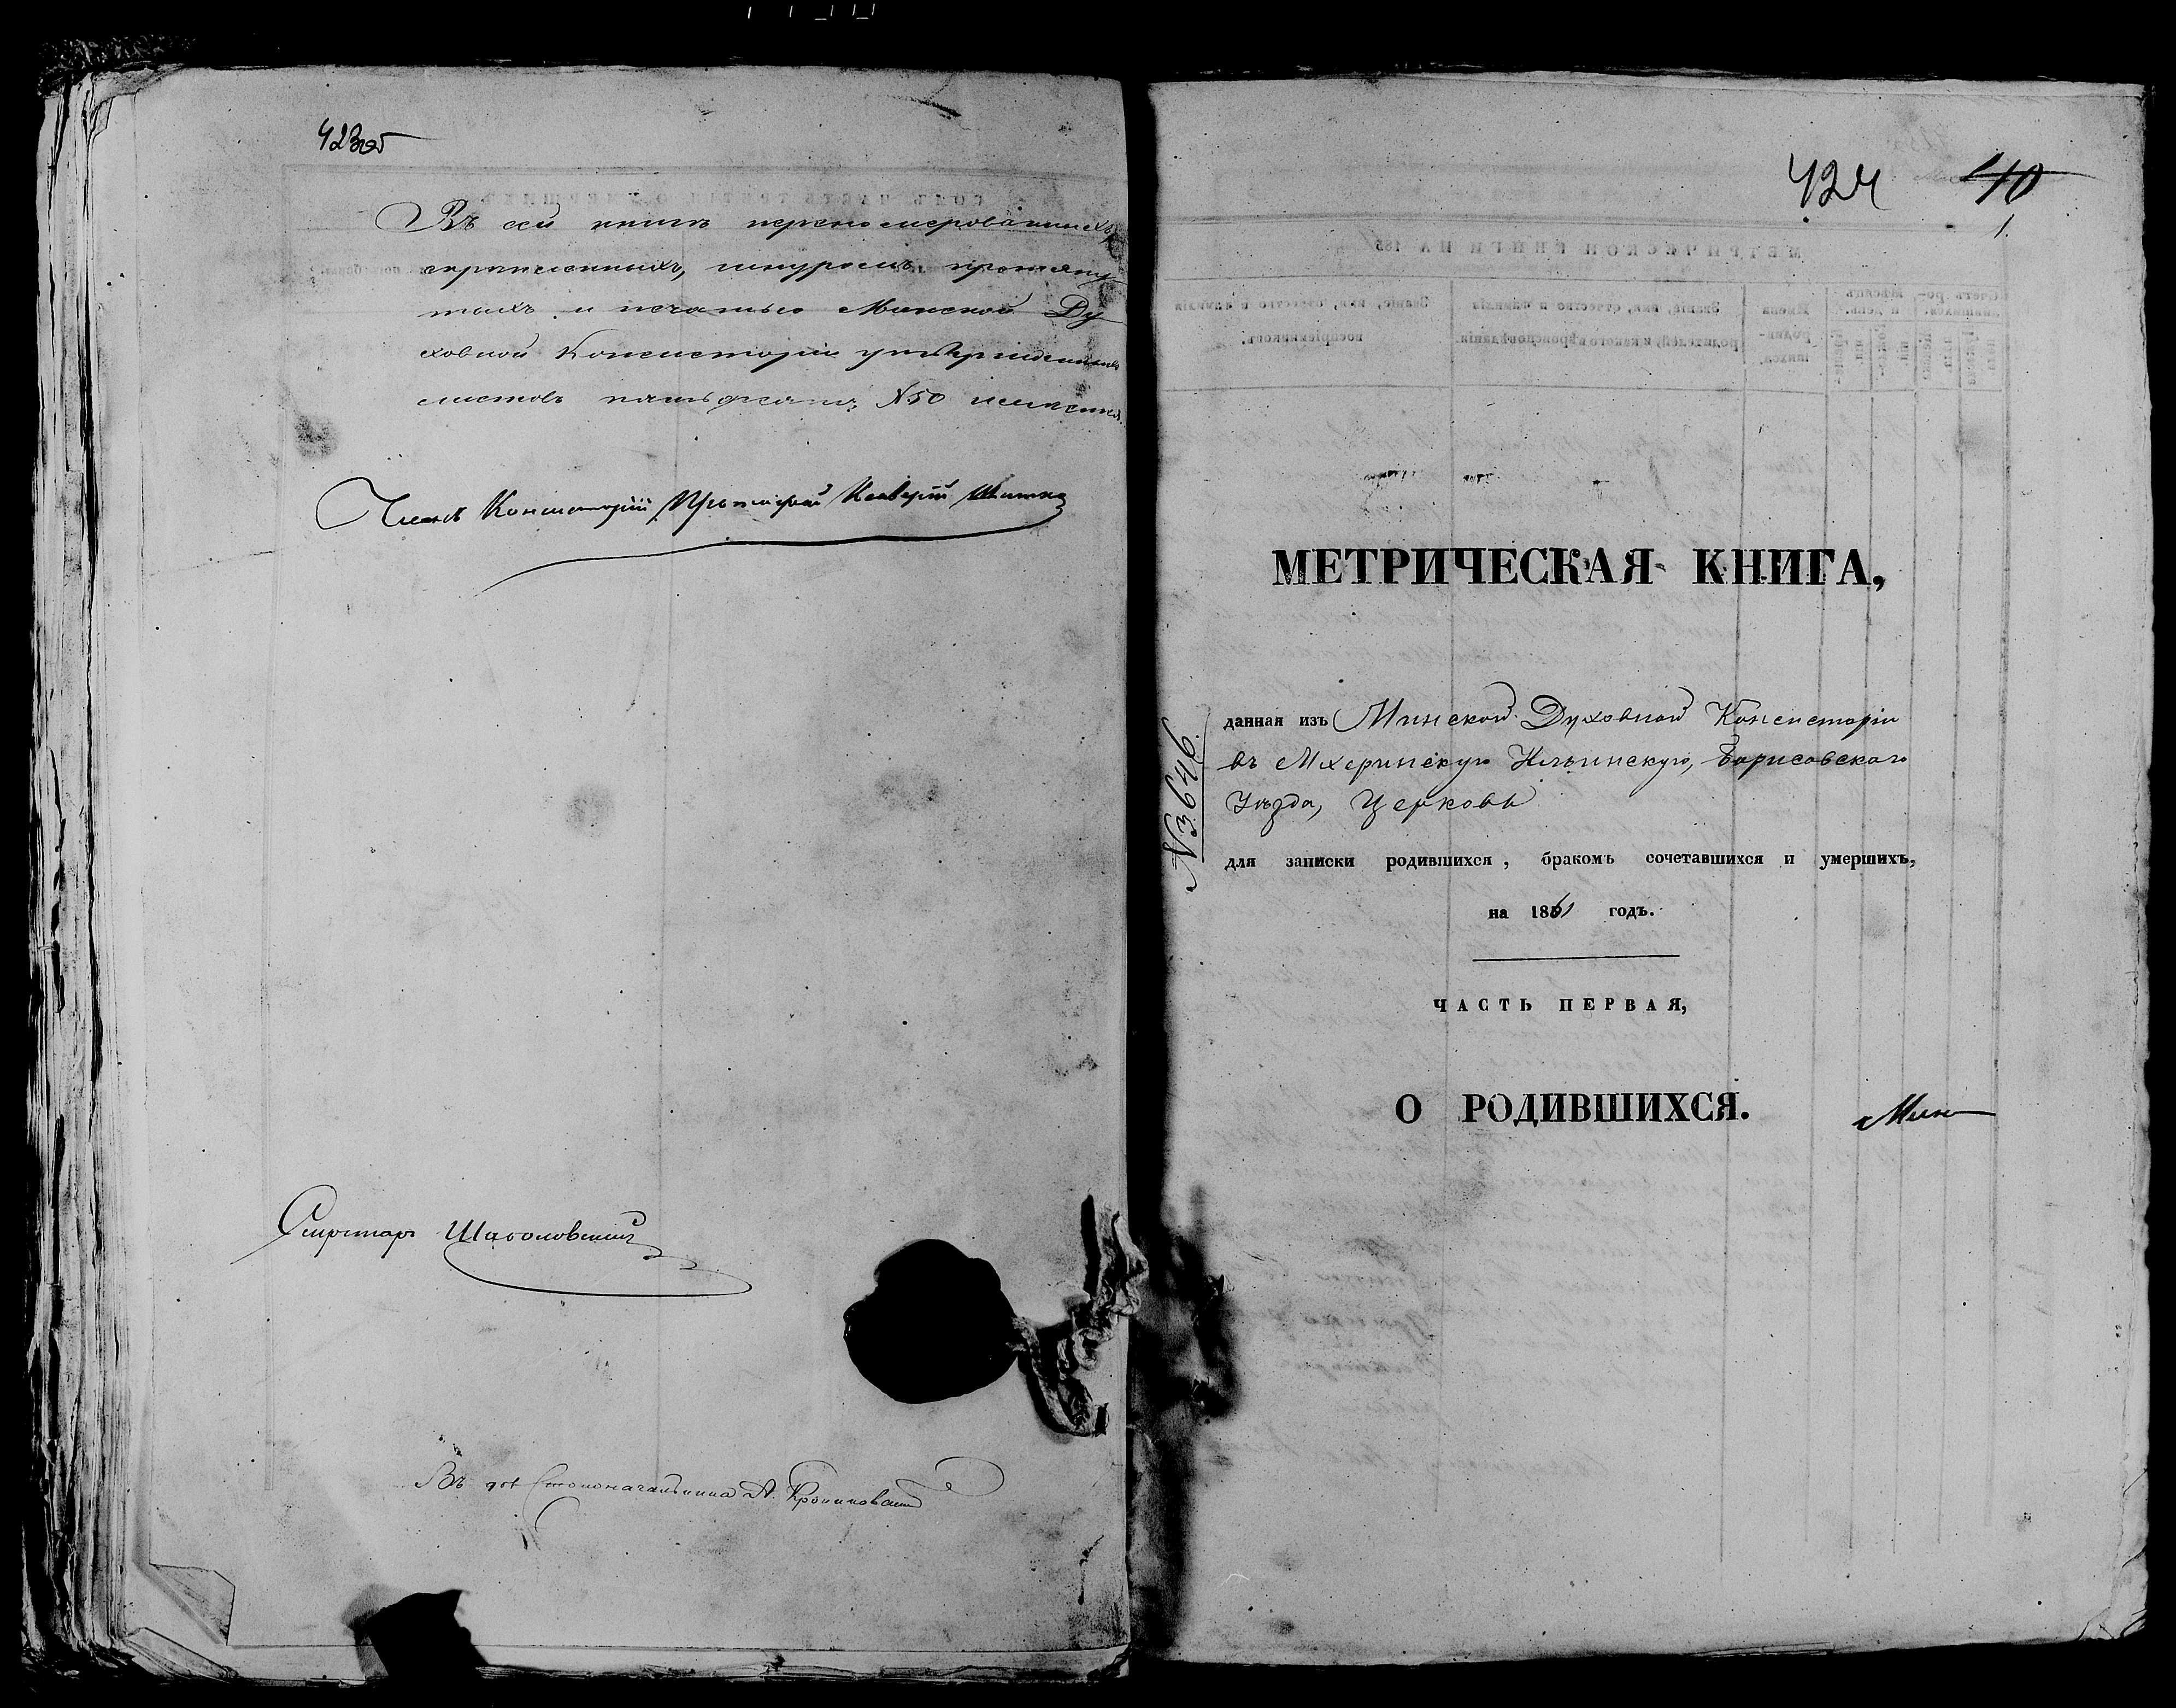 423об
Въ сей книгѣ перенумерованныхъ,
скрѣпленныхъ, шнуромъ протяну-
тыхъ и печатью Минской Ду-
ховной Консисторіи утвержденныхъ
листовъ пятьдесятъ № 50 имѣется
Членъ Консисторіи Протоіерей
Секретарь Шаболовскій
Въ дол. Столоначальника А.
424 40
1.
МЕТРИЧЕСКАЯ КНИГА,
№ 3646.
данная изъ Минской Духовной Консисторіи
въ Мхеринскую Ильинскую, Борисовскаго
Уѣзда, Церковь
для записки родившихся, бракомъ сочетавшихся и умершихъ,
на 1861 годъ.
ЧАСТЬ ПЕРВАЯ,
О РОДИВШИХСЯ.
Мин